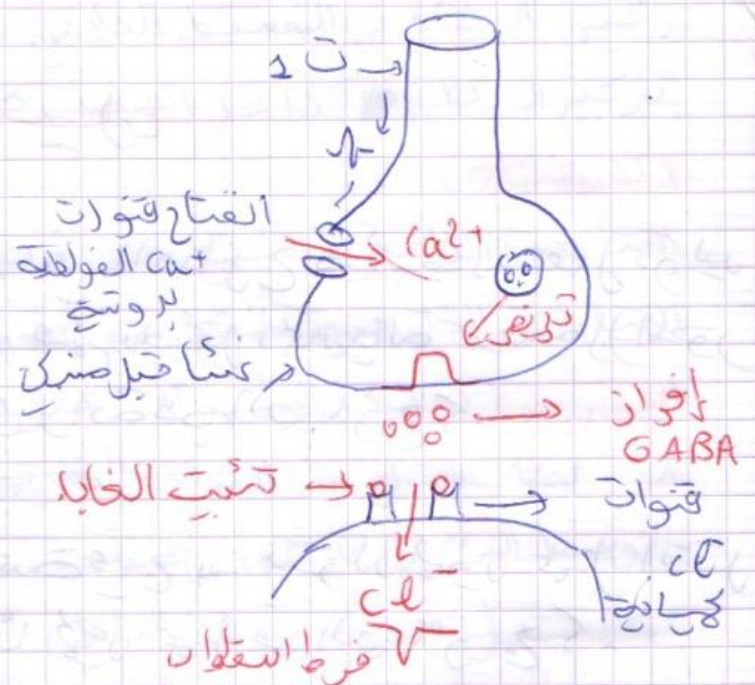 ت 1
انفتاح قنوات
Ca+ الفولطية
Ca2+
بروتنية
تحريض
غشاء قبل مشبكي
إفراز
GABA
تثبيت الغابا
قنوات
Cl
كميائية
Cl-
فرط استقطاب